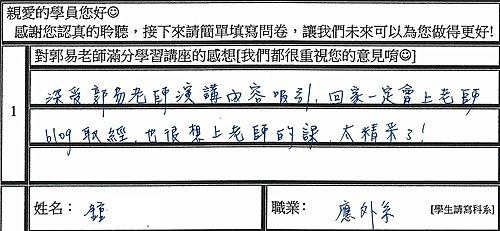 親愛的學員您好☺
感謝您認真的聆聽，接下來請簡單填寫問卷，讓我們未來可以為您做得更好!
對郭易老師滿分學習講座的感想[我們都很重視您的意見唷☺]
1
深受郭易老師演講內容吸引，回家一定會上老師
blog取經，也很想上老師的課，太精采了！
姓名： 鍾
職業： 應外系 [學生請寫科系]